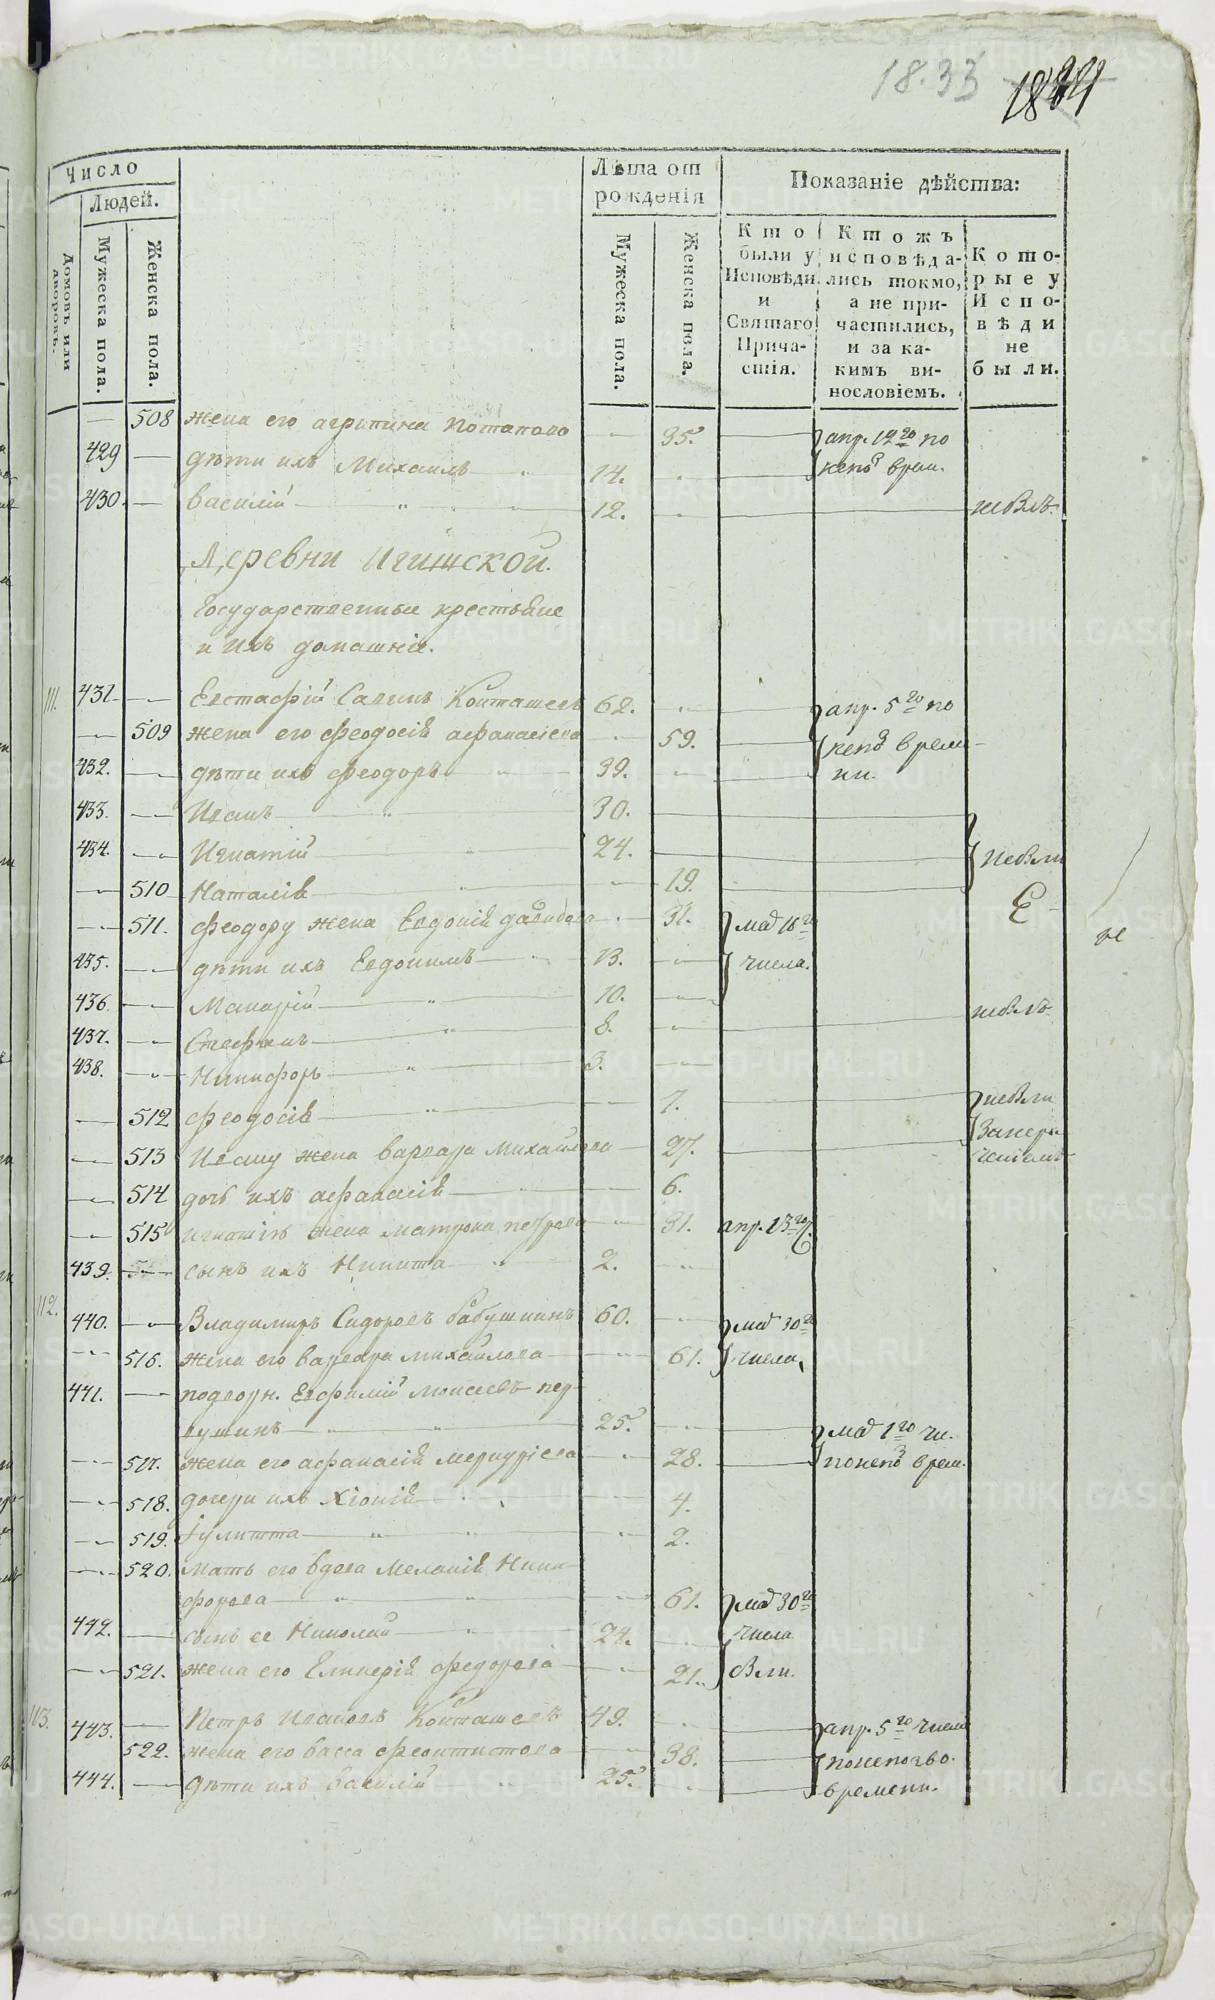 18.33 1844
Число
Людей.
Домовъ или дворовъ.
Мужеска пола.
Женска пола.
Лѣта от рожденія
Мужеска пола.
Женска пола.
Показаніе дѣйства:
Кто были у Исповѣди и Святаго Причастія.
Ктожъ исповѣдались токмо, а не причастились, и за какимъ винословіемъ.
Которые у Исповѣди не были.
508 жена его агрипина потапова 35. апр. 12го по
429 дѣти ихъ Михаилъ 14. врем.
430. василій 12. небылъ.
Деревни Игишской.
Государственные крестьяне
и ихъ домашніе.
111. 431 Евстафій Савинъ 62. апр. 5го по
509 жена его феодосія афанасіева 59. времи-
432. дѣти ихъ феодоръ 39. ни.
433. Иванъ 30.
434. Игнатій 24. небыли
510 Наталія 19.
511. феодору жена Евдокія давидова 31. маія 16го
435. дѣти ихъ Евдокимъ 13. числа.
436. Макарій 10. небылъ
437. Стефанъ 8.
438. Никифоръ 3.
512 феодосія 7. небыли
513 Ивану жена варвара михайлова 27.
514 дочь ихъ афанасія 6.
515 игнатія жена матрона петрова 31. апр. 13го
439. сынъ ихъ Никита 2.
112. 440. Владимиръ Сидоровъ бабушкинъ 60. маія 30го
516. жена его варвара михайлова 61. числа,
441. подворн. Евфимій Моисеевъ пер-
вушинъ 25. маія 1го чи.
517. жена его афанасія меркуріева 28. врем.
518. дочери ихъ Хіонія 4.
519. Іулитта 2.
520. мать его вдова Меланія Ники-
форова 61. маія 30го
442. сынъ ее Николай 24. числа
521. жена его Гликерія федорова 21. были.
113. 443. Петръ Ивановъ 49. апр. 5го числа
522. жена его васса феоктистова 38.
444. дѣти ихъ василій 25. времени.